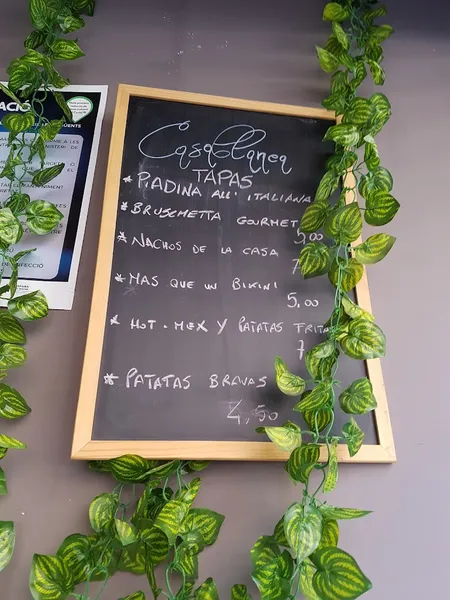 Casablanca
TAPAS
* PIADINA ALL' ITALIANA
* BRUSCHETTA GOURMET
5,00
* NACHOS DE LA CASA
7
* MAS QUE UN BIKINI
5,00
* HOT-MEX Y PATATAS FRITAS
7
* PATATAS BRAVAS
4,50
ACIÓ